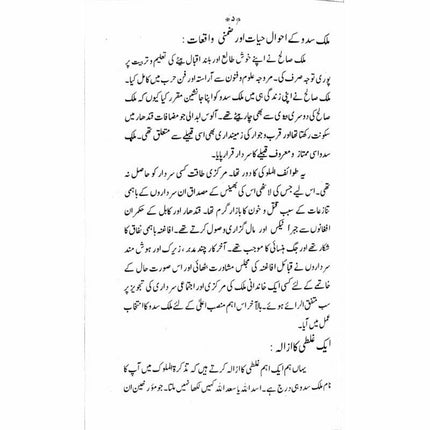 ملک سدو کے احوال حیات اور ضمنی واقعات :
ملک صالح نے اپنے خوش طالع اور بلند اقبال بیٹے کی تعلیم و تربیت پر
پوری توجہ صرف کی۔ مروجہ علوم و فنون سے آراستہ اور فن حرب میں کامل کیا۔
ملک صالح نے اپنی زندگی ہی میں ملک سدو کو اپنا جانشین مقرر کیا کیوں کہ ملک
صالح کی دوسری بیوی سے بھی چار بیٹے تھے۔ آلوس ابدالی جو مضافات قندھار میں
سکونت رکھتا تھا اور قرب و جوار کی زمینداری بھی اسی قبیلے سے متعلق تھی۔ ملک
سدو اسی ممتاز و معروف قبیلے کا سردار قرار پایا۔
یہ طوائف الملوکی کا دور تھا۔ مرکزی طاقت کسی سردار کو حاصل نہ
تھی۔ اس لیے جس کی لاٹھی اس کی بھینس کے مصداق ان سرداروں کے باہمی
تنازعات کے سبب قتل و خون کا بازار گرم تھا۔ قندھار اور کابل کے حکمران
افغانوں سے جبراً ٹیکس اور مال گزاری وصول کرتے تھے۔ افاغنہ باہمی نفاق کا
شکار تھے اور جگ ہنسائی کا موجب تھے۔ آخر کار چند مدبر، زیرک اور ہوش مند
سرداروں نے قبائل افاغنہ کی مجلس مشاورت بٹھائی اور اس صورت حال کے
خاتمے کے لئے کسی ایک خاندانی ملک کی مرکزی اور اجتماعی سرداری کی تجویز پر
سب متفق الرائے ہوئے۔ بالآخر اس اہم منصب اعلیٰ کے لئے ملک سدو کا انتخاب
عمل میں آیا۔
ایک غلطی کا ازالہ :
یہاں ہم ایک اہم غلطی کا ازالہ کرتے ہیں کہ تذکرۃ الملوک میں آپ کا
نام ملک سدو ہی درج ہے۔ اسد اللہ یا سعد اللہ کہیں لکھا نہیں ملتا۔ جو مؤرخین ان